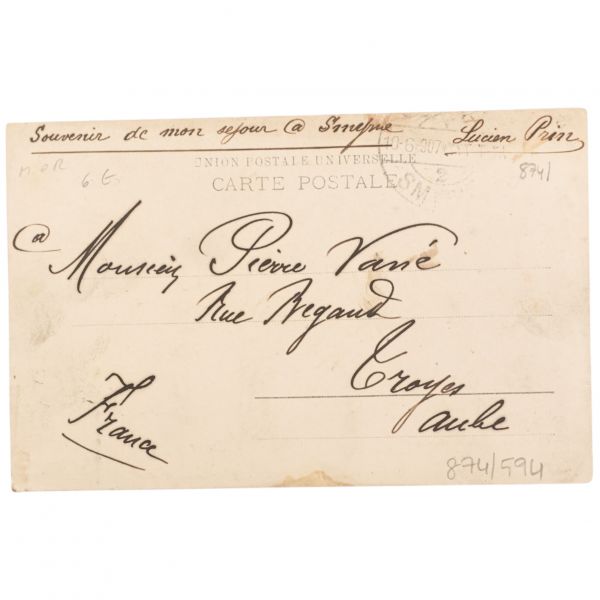 Souvenir de mon sejour @ Smyrne Lucien Prin
10-6 907
SM
2
874/
M OR
6 E.
UNION POSTALE UNIVERSELLE
CARTE POSTALE
@
Monsieur Pierre Varié
Rue Begand
Troyes
aube
France
874/594